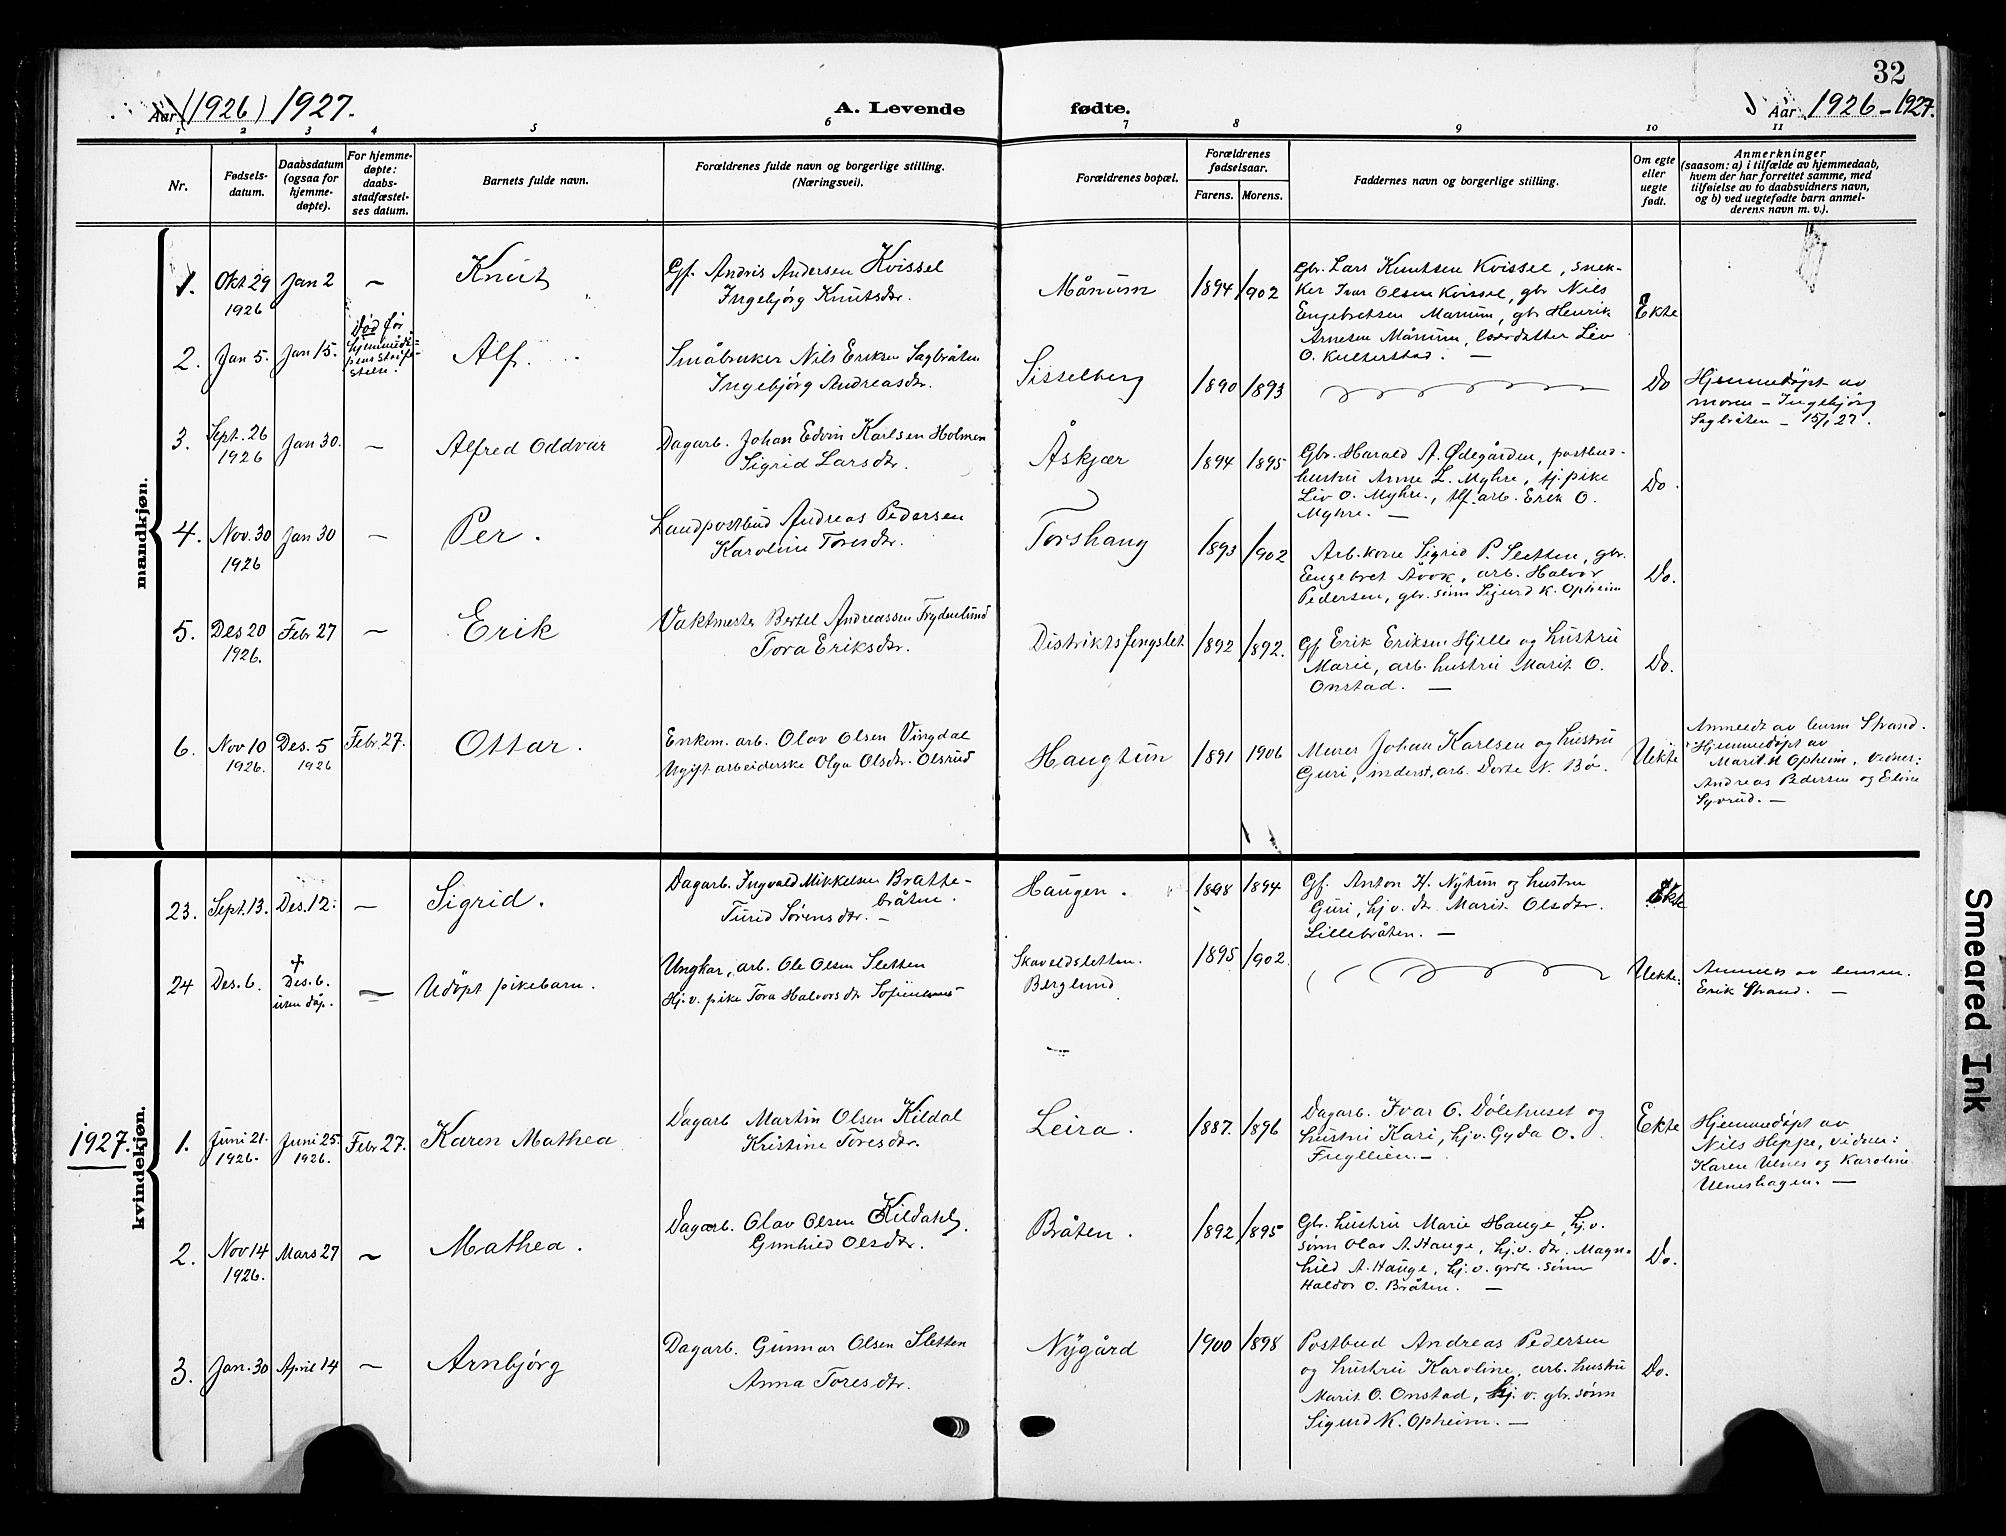 32
Aar (1926) 1927.
A. Levende
fødte.
Aar 1926-1927.
1 2 3 4 5 6 7 8 9 10 11
Nr.
Fødsels-
datum.
Daabsdatum
(ogsaa for
hjemme-
døpte).
For hjemme-
døpte:
daabs-
stadfæstel-
ses datum.
Barnets fulde navn.
Forældrenes fulde navn og borgerlige stilling.
(Næringsvei).
Forældrenes bopæl.
Forældrenes
fødselsaar.
Farens. Morens.
Faddernes navn og borgerlige stilling.
Om egte
eller
uegte
født.
Anmerkninger
(saasom: a) i tilfælde av hjemmedaab,
hvem der har forrettet samme, med
tilføielse av to daabsvidners navn,
og b) ved uegtefødte barn anmel-
derens navn m. v.).
mandkjøn.
1.
Okt 29
1926
Jan 2
—
Knut
Gf. Andris Andersen Kvissel
Ingebjørg Knutsdtr.
Månum
1894 1902
Gbr. Lars Knutsen Kvissel, snek-
ker Ivar Olsen Kvissel, gbr Nils
Engebretsen Manum, gbr Henrik
Arnesen Månum, datter Liv
O. Kulterstad. —
Ekte
2.
Jan 5.
Jan 15.
Død før
Alf.
Småbruker Nils Eriksen Sagbråten
Ingebjørg Andreasdtr.
Sisselberg
1890 1893
Do
Hjemmedøpt av
moren - Ingebjørg
Sagbråten - 15/1 27.
3.
Sept. 26
1926
Jan 30.
—
Alfred Oddvar
Dagarb. Johan Edvin Karlsen Holmen
Sigrid Larsdtr.
Åskjær
1894 1895
Gbr. Harald A. Ødegården, postbud-
hustru Anne L. Myhre, tj. pike
Liv O. Myhre, tlf. arb. Erik O.
Myhre. —
Do.
4.
Nov. 30
1926
Jan 30
—
Per.
Landpostbud Andreas Pedersen
Karoline Toresdtr.
Torshaug
1893 1902
Arb. kone Sigrid P. Sletten, gbr.
Engebret Åvok, arb. Halvor
Pedersen, gbr. sønn Sigurd K. Opheim
Do.
5.
Des 20
1926.
Febr 27
—
Erik
Vaktmester Bertel Andreassen Frydenlund
Tora Eriksdtr.
Distriktsfengslet
1892 1892.
Gf Erik Eriksen Hjelle og hustru
Marie, arb. hustru Marit O.
Onstad. —
Do.
6.
Nov 10
1926.
Des. 5
1926
Febr. 27.
Ottar.
Enkem. arb. Olav Olsen Vingdal
Ugift arbeiderske Olga Olsdtr. Olsrud
Haugtun
1891 1906
Murer Johan Karlsen og hustru
Guri, inderst, arb. Dorte N. Bø.
Uekte
Anmeldt av lensm Strand.
Hjemmedøpt av
Marit H Opheim, vidner:
Andreas Pedersen og Eline
Syvrud. —
kvindekjøn.
23.
Sept. 13.
Des. 12.
—
Sigrid.
Dagarb. Ingvald Mikkelsen Bratte-
bråten.
Turid Sørensdtr. —
Haugen.
1898 1894
Gf. Anton H. Nytun og hustru
Guri, hj. v. dtr. Marit Olsdtr.
Lillebråten. —
Ekte
24
Des. 6.
†
Des. 6.
uten dåp.
—
Udøpt pikebarn.
Ungkar, arb. Ole Olsen Sletten
Hj. v. pike Tora Halvorsdtr
Skaveldsletten.
Berglund
1895 1902
Uekte:
Anmeldt av lensm.
Erik Strand. —
1927.
1.
Juni 21.
1926.
Juni 25.
1926.
Febr 27.
Karen Mathea
Dagarb Martin Olsen Kildal
Kristine Toresdtr.
Leira.
1887. 1896
Dagarb. Ivar O. Dølehuset og
hustru Kari, hj. v. Gyda O.
Fugllien. —
Ekte
Hjemmedøpt av
Nils Heppe, vidner:
Karen Ulnes og Karoline
Ulneshagen. —
2.
Nov 14
1926.
Mars 27
—
Mathea.
Dagarb. Olav Olsen Kildahl.
Gunhild Olsdtr.
Bråten.
1892 1895
Gbr. hustru Marie Hauge, hj. v.
sønn Olav A. Hauge, hj. v. dtr. Magn-
hild A. Hauge, hj. v. grdbr. sønn
Haldor O. Bråten. —
Do.
3.
Jan. 30
April 14
—
Arnbjørg
Dagarb. Gunnar Olsen Sletten
Anna Toresdtr.
Nygård
1900 1898
Postbud Andreas Pedersen
og hustru Karoline, arb. hustru
Marit O. Onstad, hj. v. gbr. sønn
Sigurd K. Opheim. —
Do.
Smeared Ink